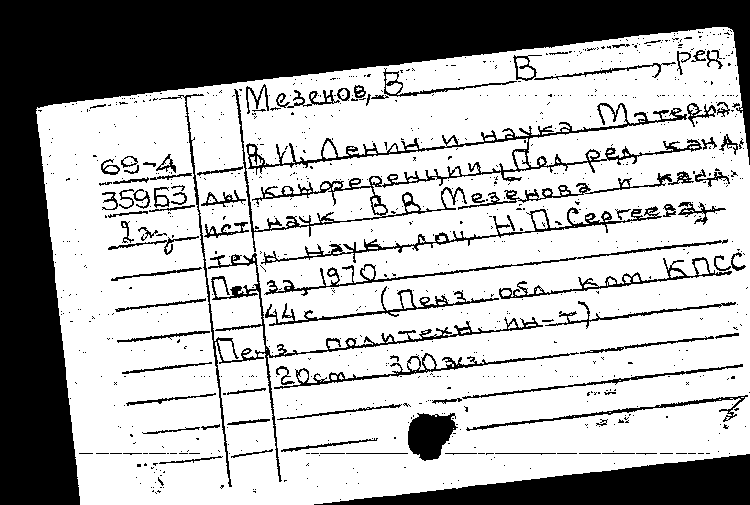 Мезенов, В В , ред.
69-4
35953
2 экз
В.И. Ленин и наука. Материа-
лы конференции. Под ред. канд.
ист. наук В.В. Мезенова и канд.
техн. наук, доц. Н.П. Сергеева.
Пенза, 1970.
44 с. (Пенз. обл. ком. КПСС
Пенз. политехн. ин-т).
20 см. 300 экз.